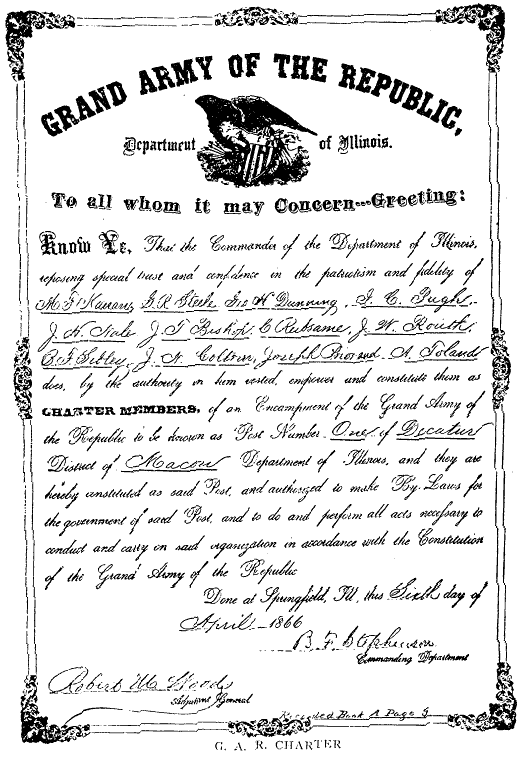 GRAND ARMY OF THE REPUBLIC,
Department of Illinois.
To all whom it may Concern---Greeting:
Know Ye, That the Commander of the Department of Illinois,
reposing special trust and confidence in the patriotism and fidelity of
M. F. Kanan, G. R. Steele Geo H Dunning, I. C. Pugh
J. H. Nale J. T. Bishop C Reibsame, J. W. Routh
B. F. Sibley, J. N. Coltrin, Joseph Prior and A. Toland
does, by the authority in him vested, empower and constitute them as
CHARTER MEMBERS, of an Encampment of the Grand Army of
the Republic to be known as Post Number One of Decatur
District of Macon Department of Illinois, and they are
hereby constituted as said Post, and authorized to make By-Laws for
the government of said Post, and to do and perform all acts necessary to
conduct and carry on said organization in accordance with the Constitution
of the Grand Army of the Republic
Done at Springfield, Ill, this Sixth day of
April 1866
B. F. Stephenson
Commanding Department
Robert M. Woods
Adjutant General
Recorded Book A Page 3
G. A. R. CHARTER